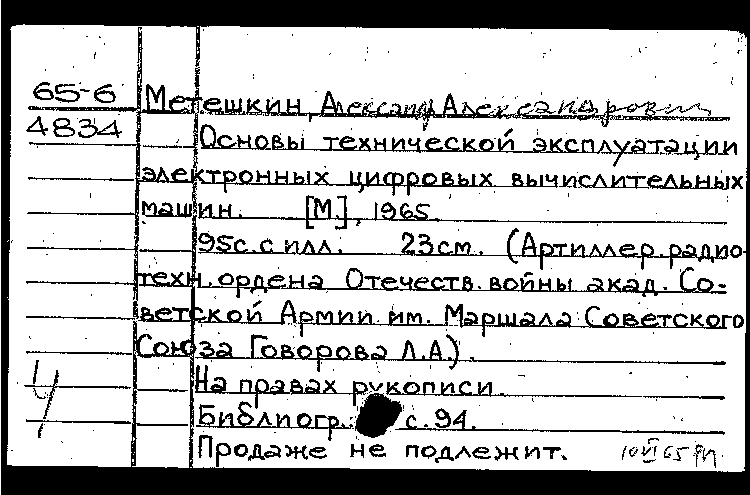 65-6 Метешкин, Александр Александрович
4834 Основы технической эксплуатации
электронных цифровых вычислительных
машин. [М], 1965.
95с. с илл. 23см. (Артиллер. радио-
техн. ордена Отечеств. войны акад. Со-
ветской Армии им. Маршала Советского
Союза Говорова Л.А.).
На правах рукописи.
Библиогр. с. 94.
Продаже не подлежит.